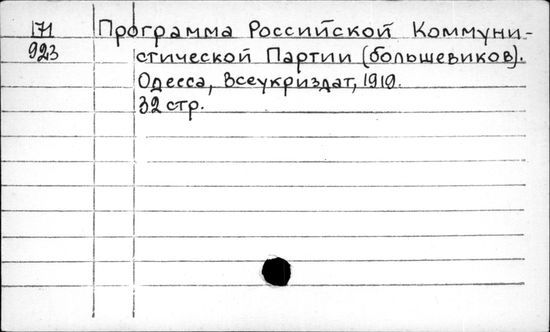 171 Программа Российской Коммуни-
923 стической Партии (большевиков).
Одесса, Всеукриздат, 1919.
32 стр.